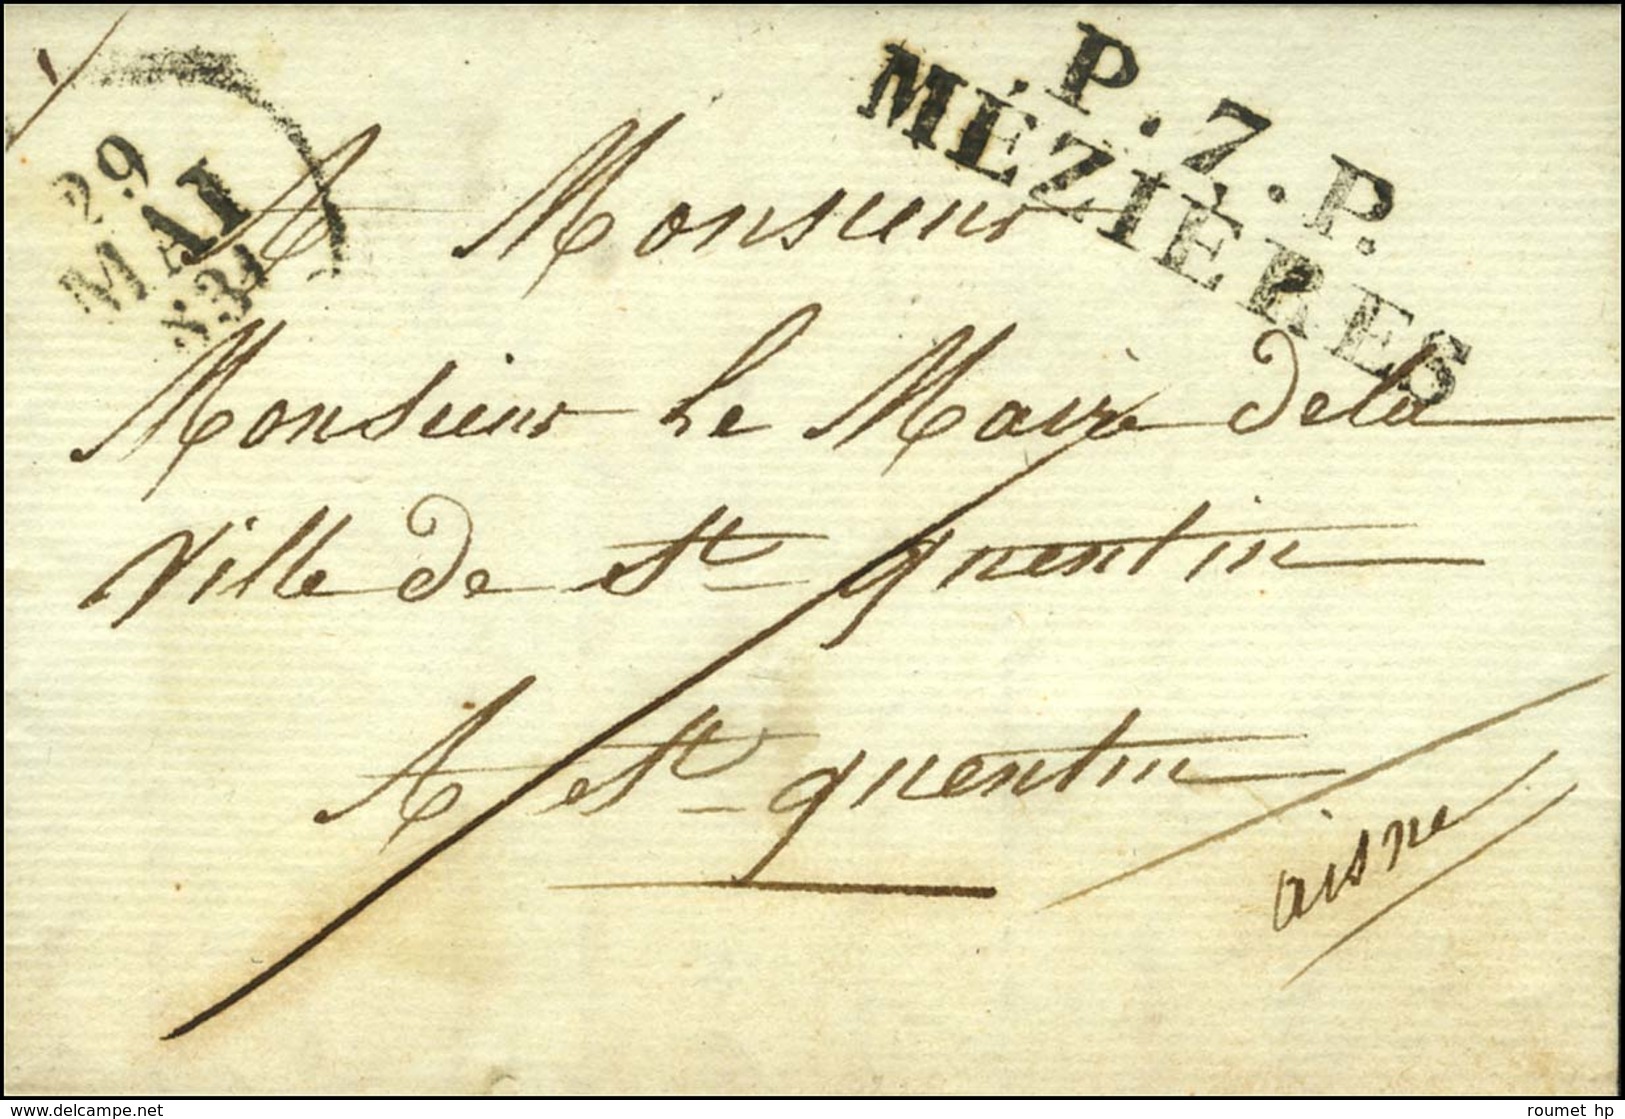 P.7.P.
MÉZIÉRES
29
MAI
A Monsieur
Monsieur Le Maire dela
Ville de St quentin
A St quentin
aisne
www.delcampe.net
roumet hp